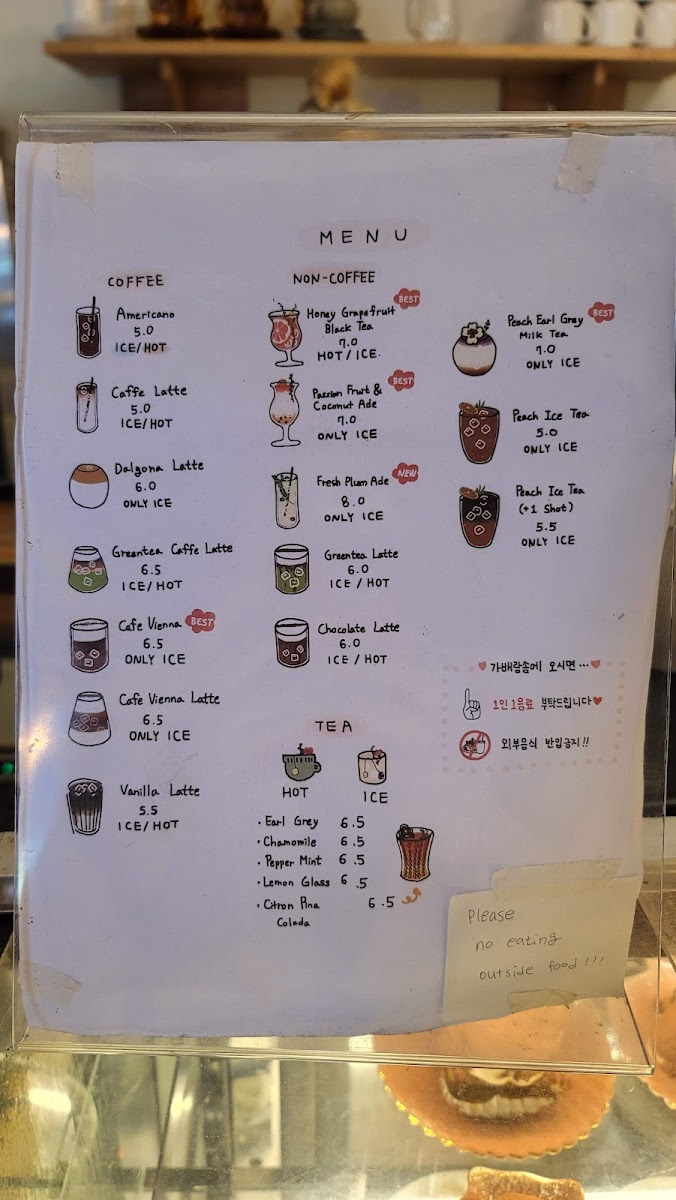 MENU
COFFEE
Americano
5.0
ICE/HOT
Caffe Latte
5.0
ICE/HOT
Dalgona Latte
6.0
ONLY ICE
Greentea Caffe Latte
6.5
ICE/HOT
Cafe Vienna
BEST
6.5
ONLY ICE
Cafe Vienna Latte
6.5
ONLY ICE
Vanilla Latte
5.5
ICE/HOT
NON-COFFEE
BEST
Honey Grapefruit
Black Tea
7.0
HOT/ICE.
BEST
Passion Fruit &
Coconut Ade
7.0
ONLY ICE
NEW
Fresh Plum Ade
8.0
ONLY ICE
Greentea Latte
6.0
ICE / HOT
Chocolate Latte
6.0
ICE / HOT
BEST
Peach Earl Grey
Milk Tea
7.0
ONLY ICE
Peach Ice Tea
5.0
ONLY ICE
Peach Ice Tea
(+1 Shot)
5.5
ONLY ICE
TEA
HOT
ICE
• Earl Grey 6.5
• Chamomile 6.5
• Pepper Mint 6.5
• Lemon Glass 6.5
• Citron Pina 6.5
Colada
♥가배람솜에 오시면...♥
1인 1음료 부탁드립니다♥
외부음식 반입금지!!
Please
no eating
outside food !!!